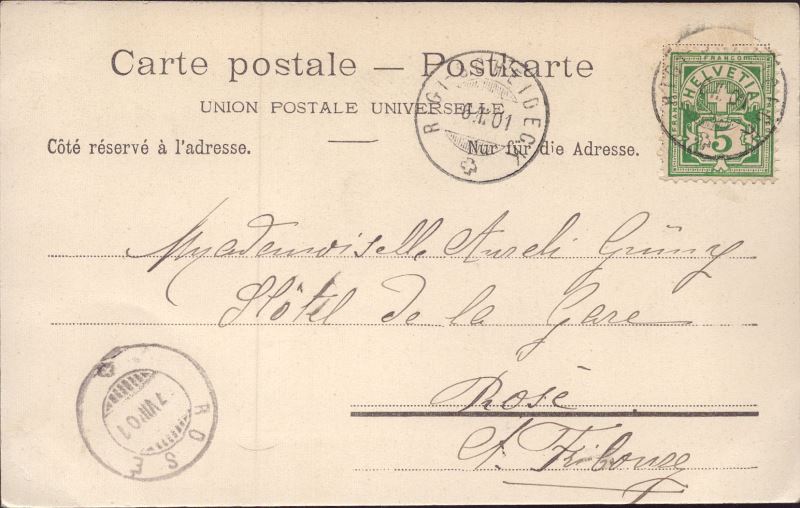 Carte postale — Postkarte
UNION POSTALE UNIVERSELLE
Côté réservé à l'adresse.
Nur für die Adresse.
RIGI-SCHEIDECK
FRANCO
HELVETIA
FRANCO
FRANCO
5
Mademoiselle Aureli
Hôtel de la Gare
Rosé
Ct. Fribourg
ROSÉ
7.VII.01